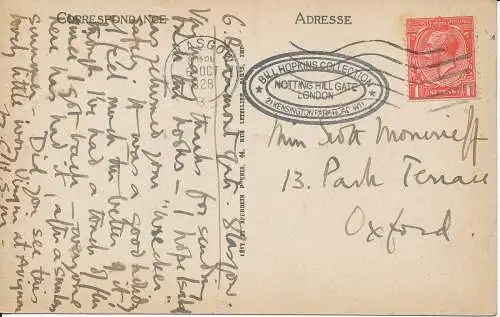 CORRESPONDANCE
ADRESSE
GLASGOW
OCT
1928
BILL HOPKINS COLLECTION
NOTTING HILL GATE
LONDON
21 KENSINGTON PARK RD. W11
1 ONE PENNY 1
Miss Scott Moncrieff
13. Park Terrace
Oxford
6. Claremont Gdns. Glasgow.
Various thanks for sending
on the books - I hope I
safely returned you "Wrecker".
It was a good holiday
& I feel much the better of it,
though we had a touch of flu
since we got back - everyone
here has had it, after a sunless
summer. Did you see this
lovely little worn Virgin at Avignon